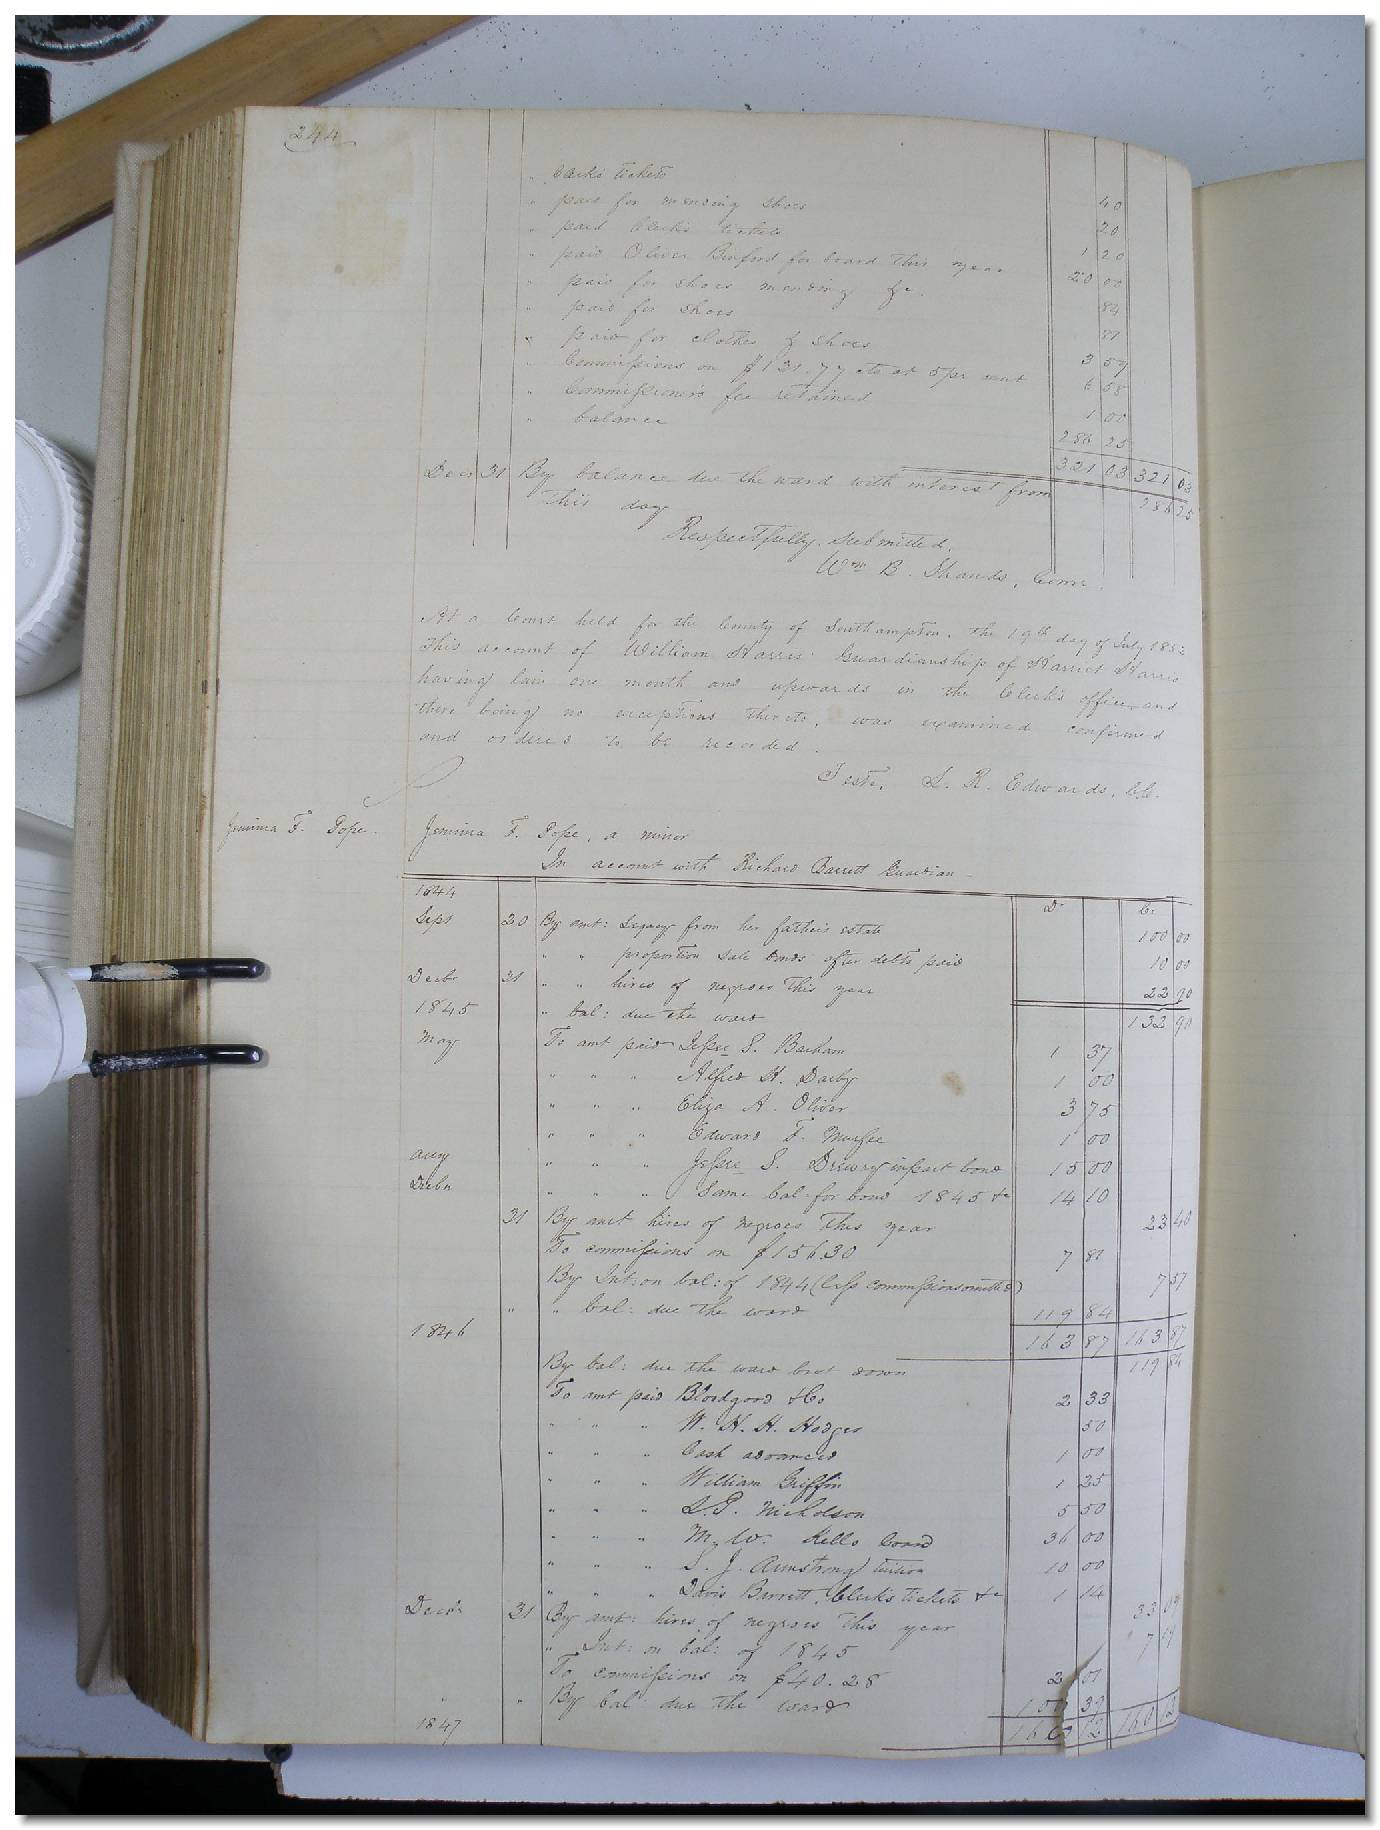 244
" Clerks tickets
" paid for mending shoes 40
" paid Clerks tickets 20
" paid Oliver Binford for board this year 1 20
" paid for shoes mending &c. 20 00
" paid for shoes 84
" paid for clothes & shoes 81
" Commissions on $131.77 cts at 5 per cent 3 57
" Commissioners fee retained 6 58
" balance 1 00
286 25
Decr 31 By balance due the ward with interest from 321 03 321 03
this day 286 25
Respectfully Submitted,
Wm B. Shands, Comr.
At a Court held for the County of Southampton, the 19th day of July 1852
This account of William Harris' Guardianship of Harriet Harris
having lain one month and upwards in the Clerk's office, and
there being no exceptions thereto, was examined confirmed
and ordered to be recorded.
Teste, L. R. Edwards, C.C.
Jemima F. Pope. Jemima F. Pope, a minor
In account with Richard Barrett Guardian
1844 Dr Cr
Sept 20 By amt: Legacy from her father's estate 100 00
" " proportion sale bonds after debts paid 10 00
Decbr 31 " " hires of negroes this year 22 90
1845 " bal: due the ward 132 90
May To amt paid Jesse S. Barham 1 37
" " " Alfred H. Darby 1 00
" " " Eliza A. Oliver 3 75
" " " Edward F. 1 00
Aug " " " Jesse S. Drewry in part bond 15 00
Decbr " " " Same bal for bond 1845 &c 14 10
31 By amt hires of negroes this year 23 40
To commissions on $156.30 7 81
By Int: on bal: of 1844 (less commissions omitted) 7 57
" " bal: due the ward 119 84
1846 163 87 163 87
By bal: due the ward brot down 119 84
To amt paid Bloodgood & Co 2 33
" " " W. H. H. Hodges 50
" " " Cash advanced 1 00
" " " William Griffin 1 25
" " " L. P. Nicholson 5 50
" " " M. W. Kello board 36 00
" " " S. J. Armstrong tuition 10 00
" " " Davis Barrett, Clerks tickets &c 1 14
Decbr 31 By amt: hires of negroes this year 33 09
" Int: on bal: of 1845 7 19
To commissions on $40.28 2 01
" " By bal due the ward 100 39
1847 160 12 160 12